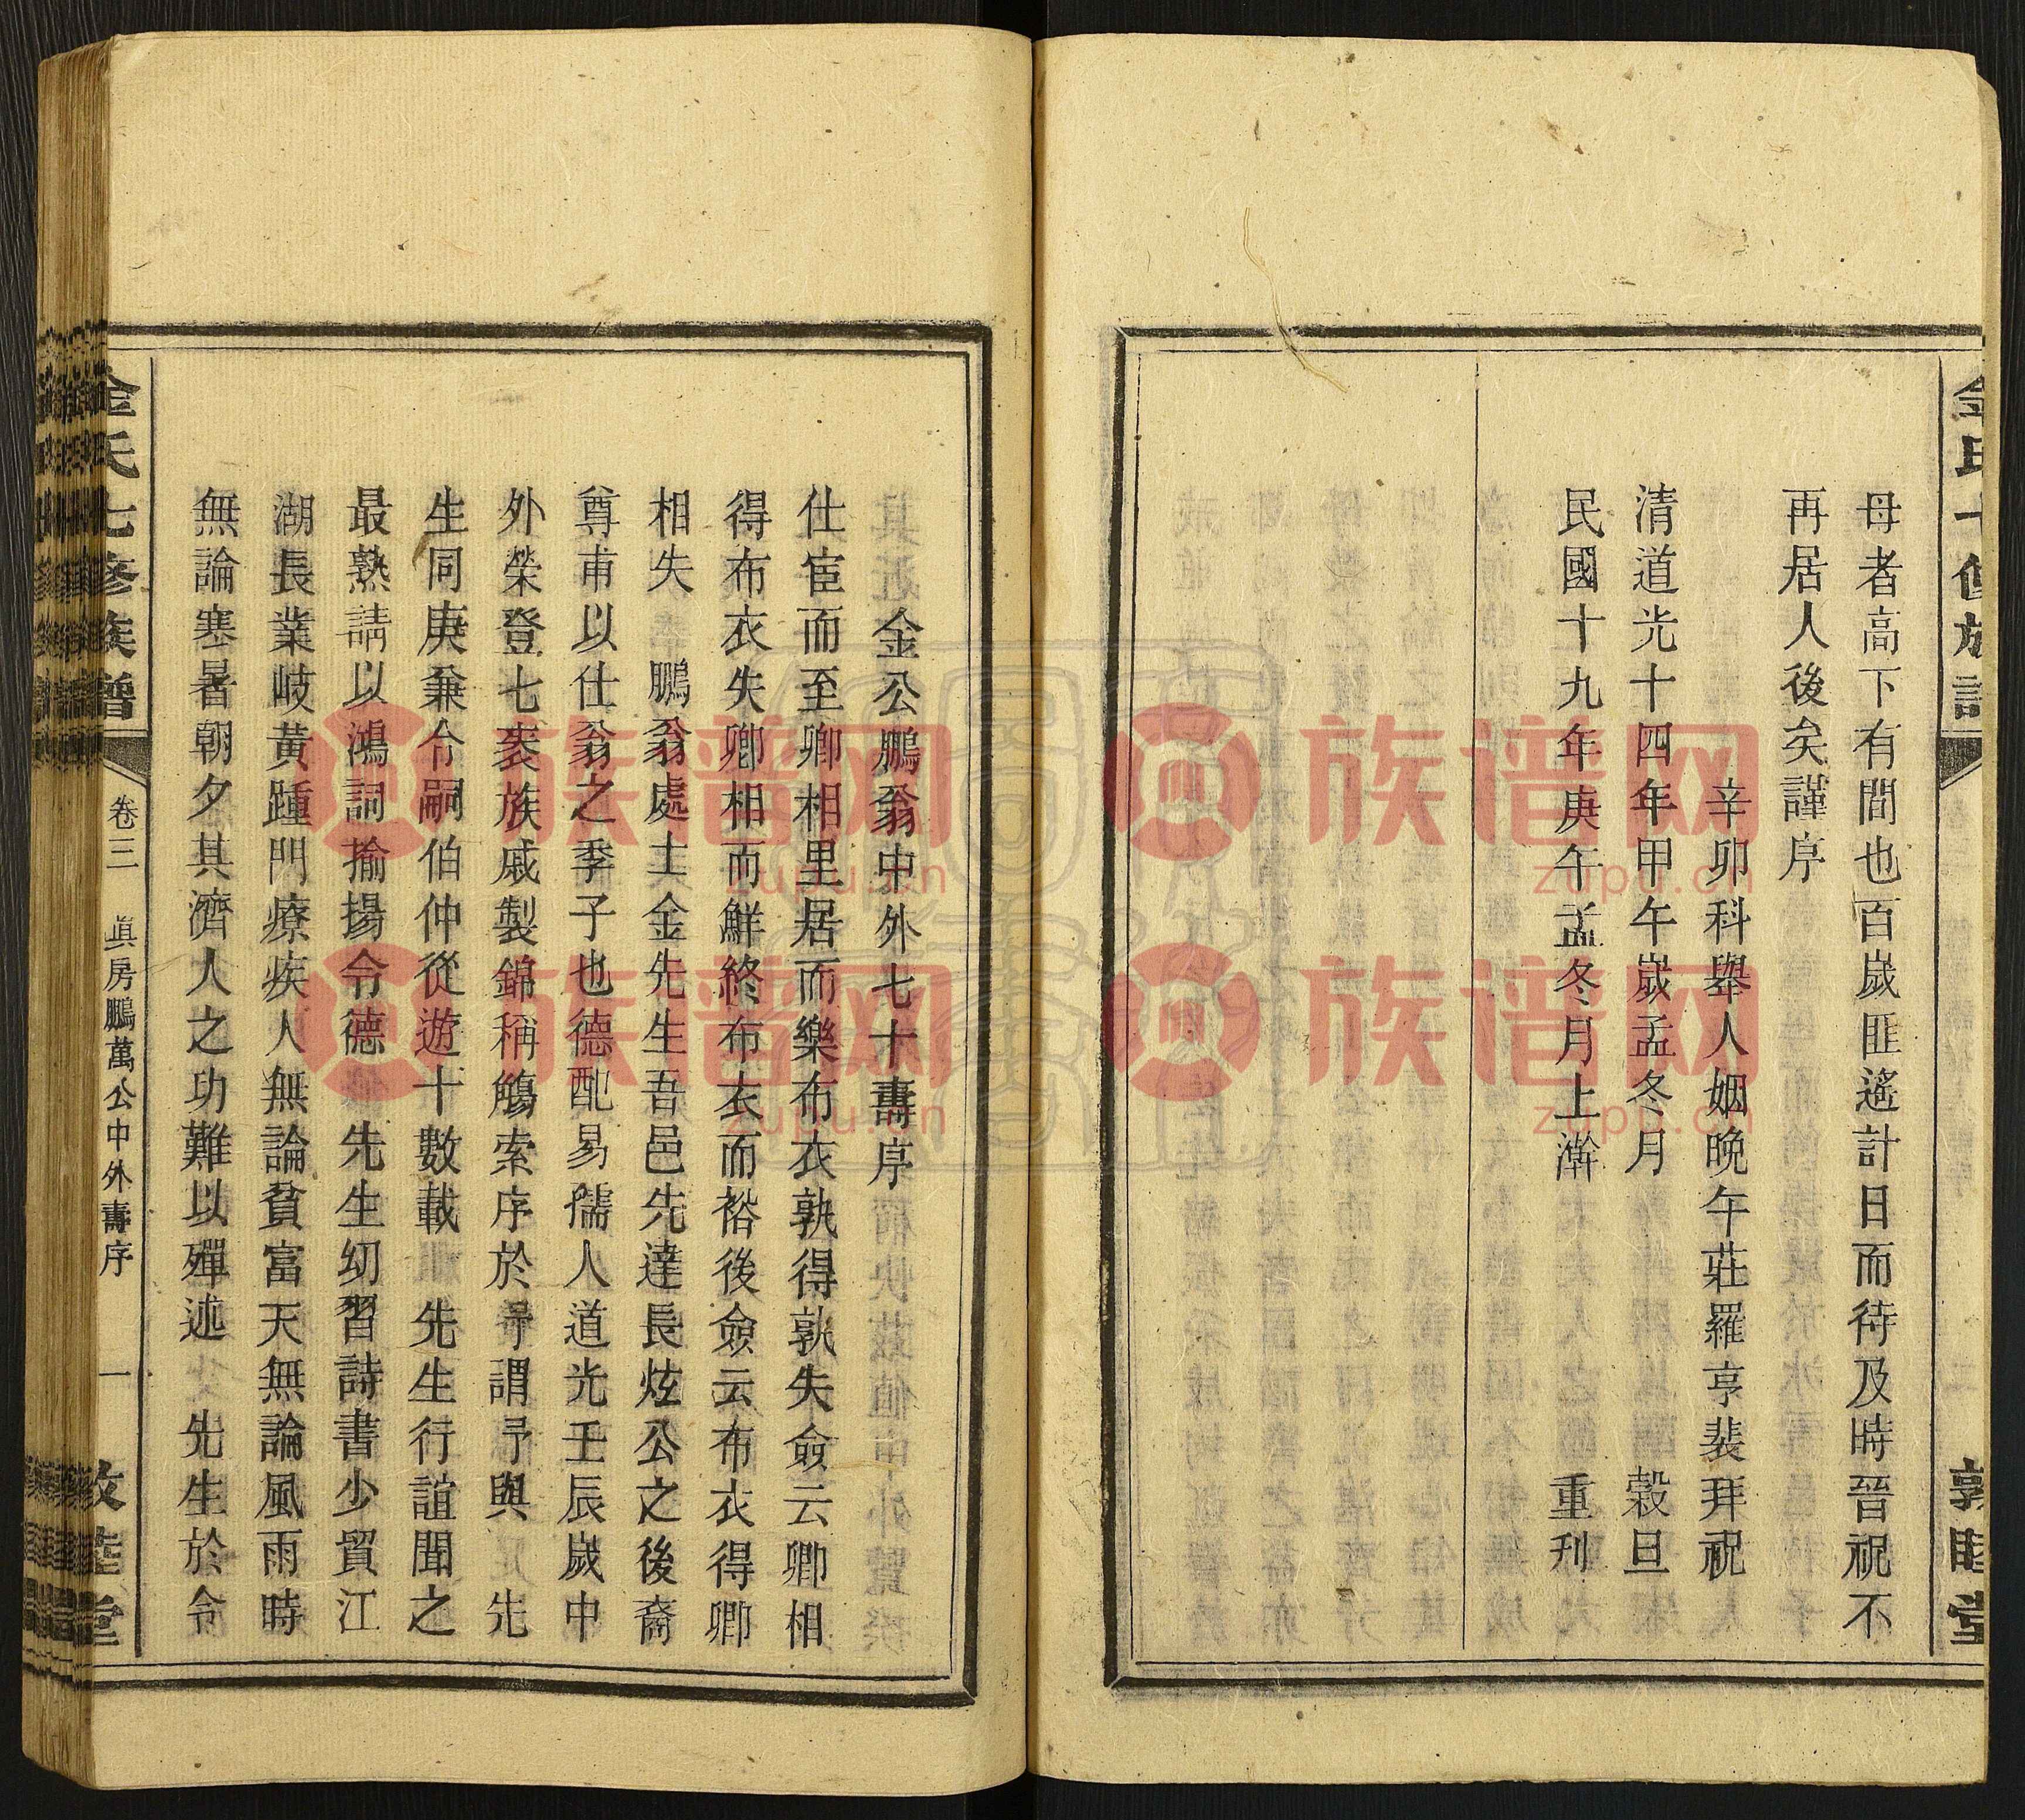 母者高下有間也百歲匪遙計日而待及時晉祝不
再居人後矣謹序
辛卯科舉人姻晚午莊羅亨裴拜祝
清道光十四年甲午歲孟冬月 穀旦
民國十九年庚午孟冬月上澣 重刋
敦睦堂
金公鵬翁中外七十壽序
仕宦而至卿相里居而樂布衣孰得孰失僉云卿相
得布衣失卿相而鮮終布衣而裕後僉云布衣得卿
相失 鵬翁處士金先生吾邑先達長炫公之後裔
尊甫以仕翁之季子也德配易孺人道光壬辰歲中
外榮登七袠族戚製錦稱觴索序於予謂予與 先
生同庚兼令嗣伯仲從遊十數載 先生行誼聞之
最熟請以鴻詞揄揚令德 先生幼習詩書少貿江
湖長業岐黃踵門療疾人無論貧富天無論風雨時
無論寒暑朝夕其濟人之功難以殫述 先生於令
金氏七修族譜
卷三 眞房鵬萬公中外壽序 一
敦睦堂
族谱网
zupu.cn
族谱网
zupu.cn
族谱网
zupu.cn
族谱网
zupu.cn